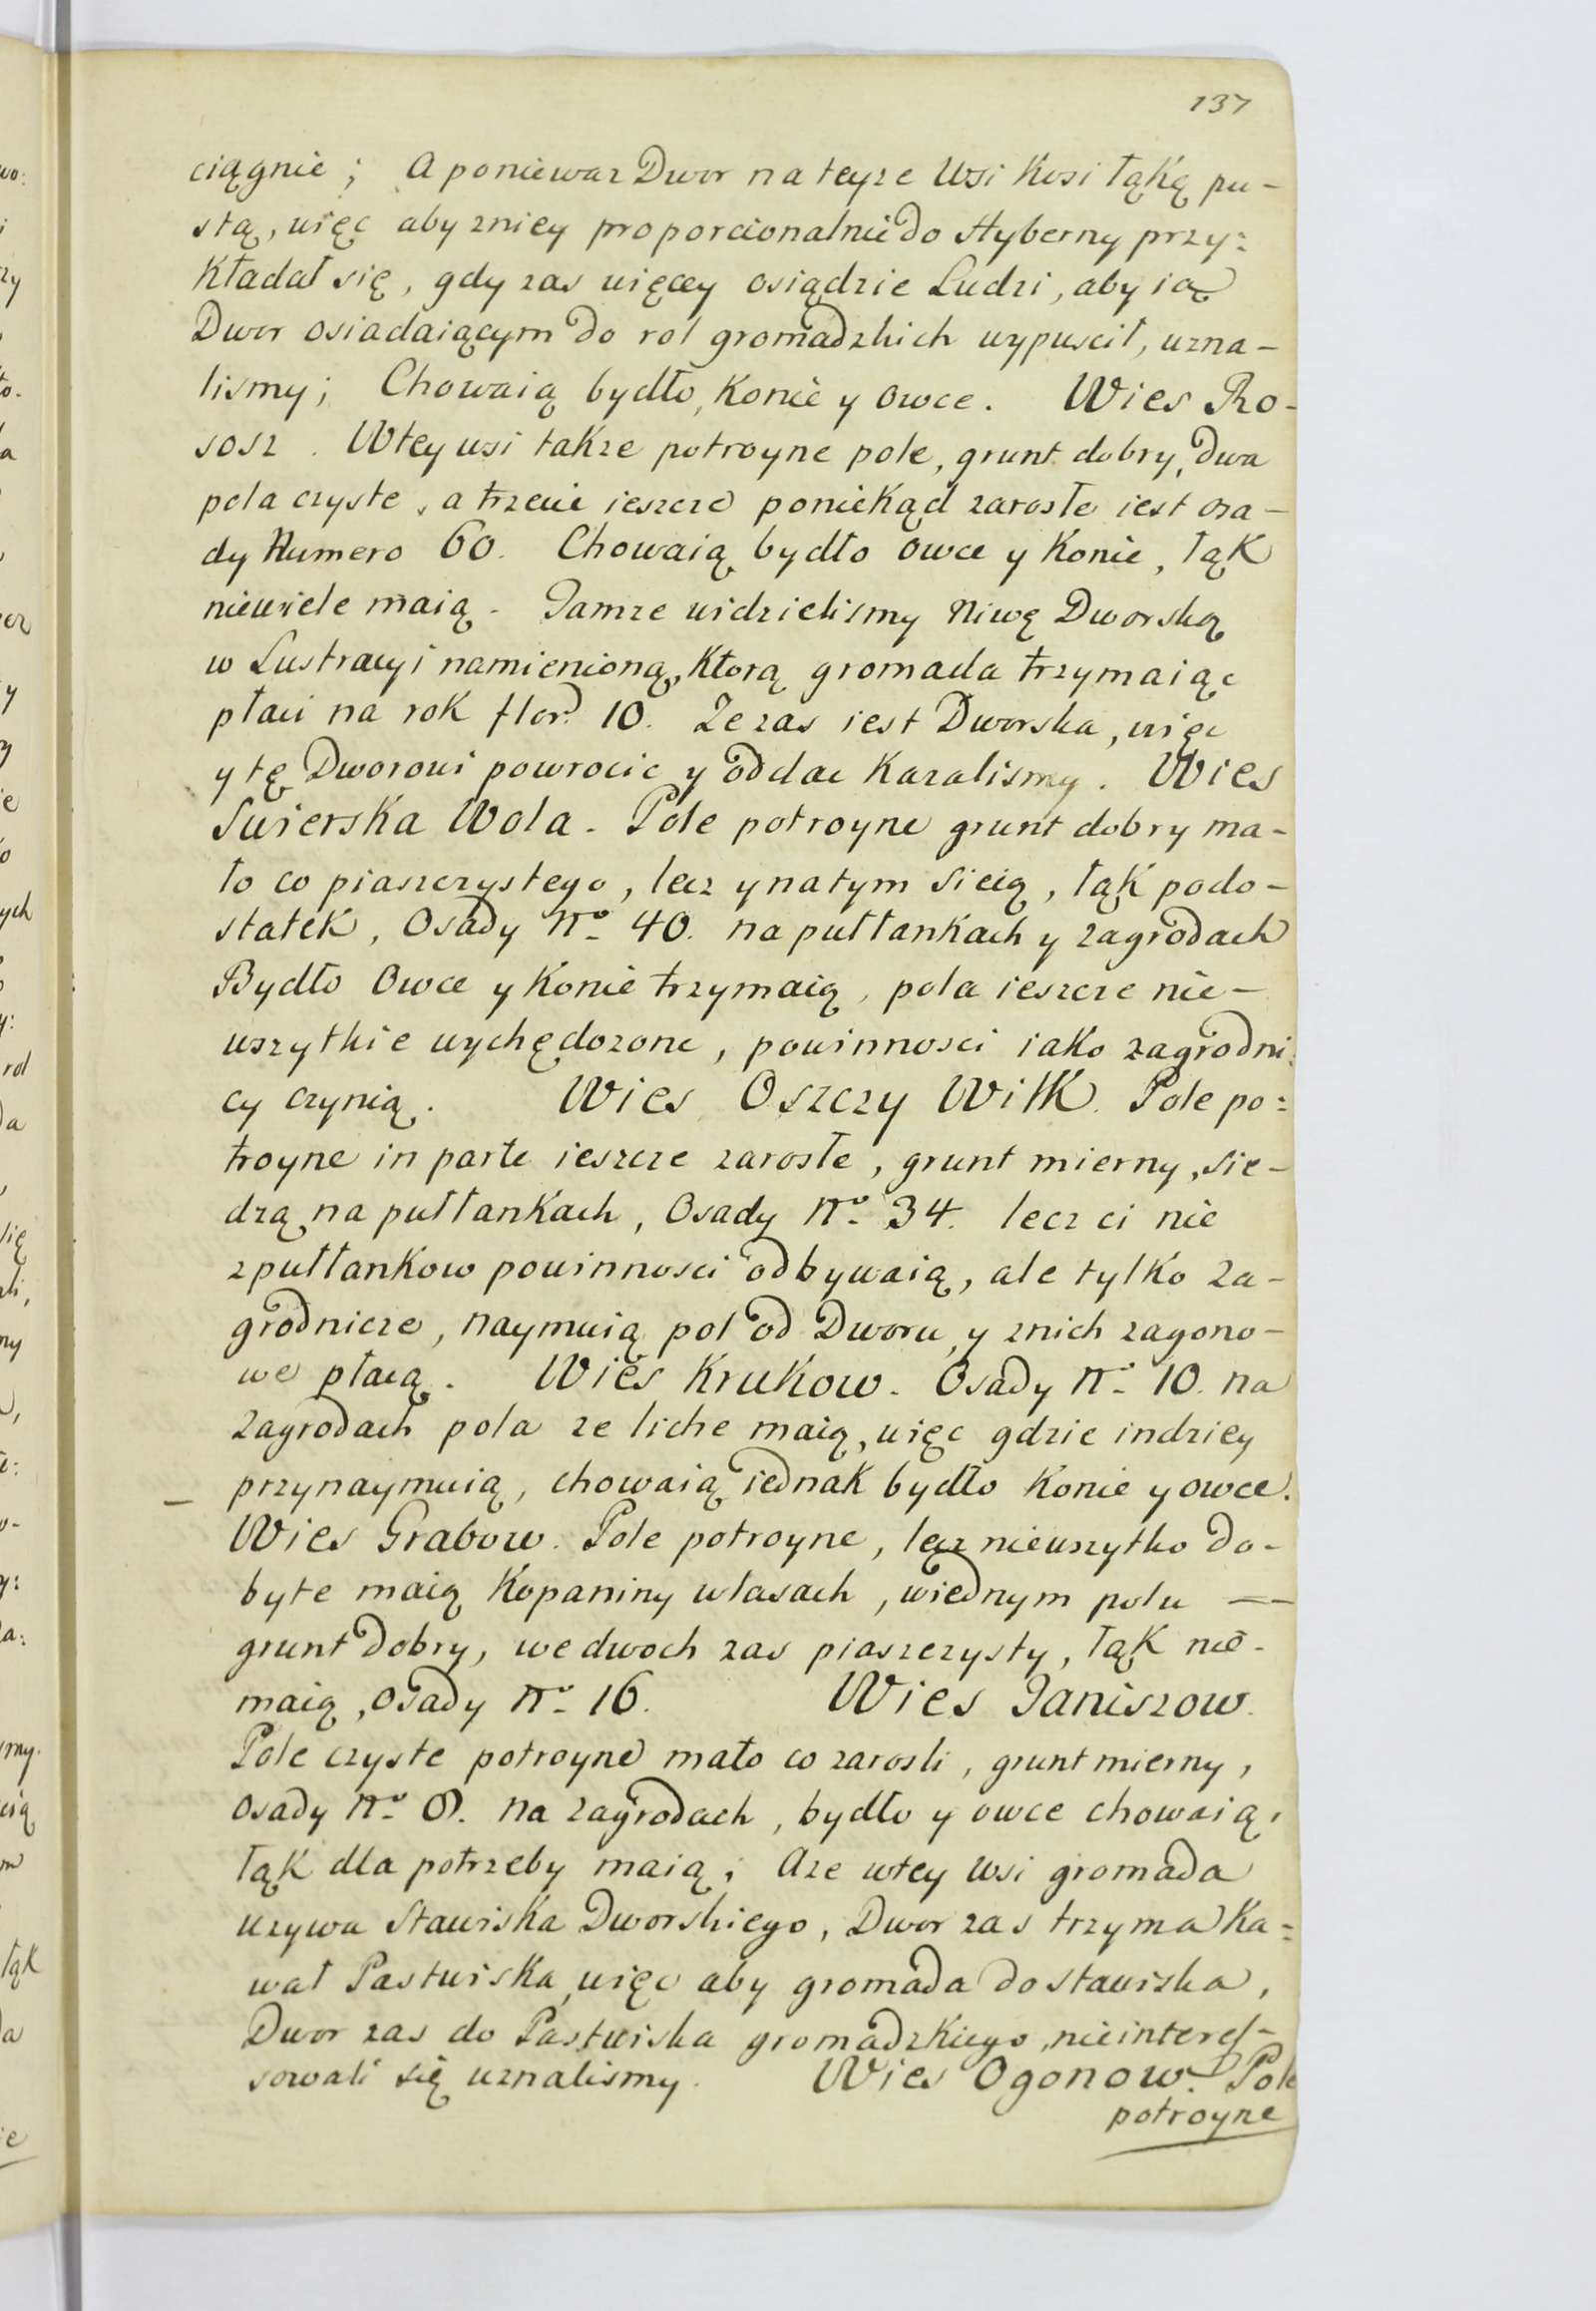 137
ciągnie; A poniewaz Dwor na teyze Wsi Kosi łąkę pu-
stą, więc aby zniey proporcionalnie do Hyberny przy:
kładał się, gdy zas więcey osiądzie Ludzi, aby ią
Dwor osiadaiącym do rol gromadzkich wypuscił, uzna-
lismy; Chowaią bydło, Konie y Owce. Wies Ro-
sosz. Wtey wsi takze potroyne pole, grunt dobry, dwa
pola czyste, a trzecie ieszcze poniekąd zarosłe iest osa-
dy Numero 60. Chowaią bydło Owce y Konie, łąk
niewiele maią. Tamze widzielismy Niwę Dworską
w Lustracyi namienioną, Ktorą gromada trzymaiąc
płaci na rok flor. 10. Ze zas iest Dworska, więc
y tę Dworowi powrocic y oddac Kazalismy. Wies
Swierska Wola. Pole potroyne grunt dobry ma-
ło co piaszczystego, lecz y na tym sieią, łąk podo-
statek, Osady No. 40. na pułłankach y zagrodach
Bydło Owce y Konie trzymaią, pola ieszcze nie-
wszytkie wychędozone, powinnosci iako zagrodni:
cy czynią. Wies Oszczy Wilk. Pole po:
troyne in parte ieszcze zarosłe, grunt mierny, sie-
dzą na pułłankach, Osady No. 34. lecz ci nie
zpułłankow powinnosci odbywaią, ale tylko za-
grodnicze, naymuią pol od Dworu, y znich zagono-
we płacą. Wies Krukow. Osady No. 10. na
zagrodach pola ze liche maią, więc gdzie indziey
przynaymuią, chowaią iednak bydło Konie y owce.
Wies Grabow. Pole potroyne, lecz niewszytko do-
byte maią Kopaniny wlasach, wiednym polu
grunt dobry, we dwoch zas piaszczysty, łąk nie-
maią, Osady No. 16. Wies Janiszow.
Pole czyste potroyne mało co zarosli, grunt mierny,
Osady No. na zagrodach, bydło y owce chowaią,
łąk dla potrzeby maią; Aze wtey Wsi gromada
uzywa Stawiska Dworskiego, Dwor zas trzyma Ka:
wał Pastwiska, więc aby gromada do stawiska,
Dwor zas do Pastwiska gromadzkiego, nieinteres-
sowali się uznalismy. Wies Ogonow. Pole
potroyne